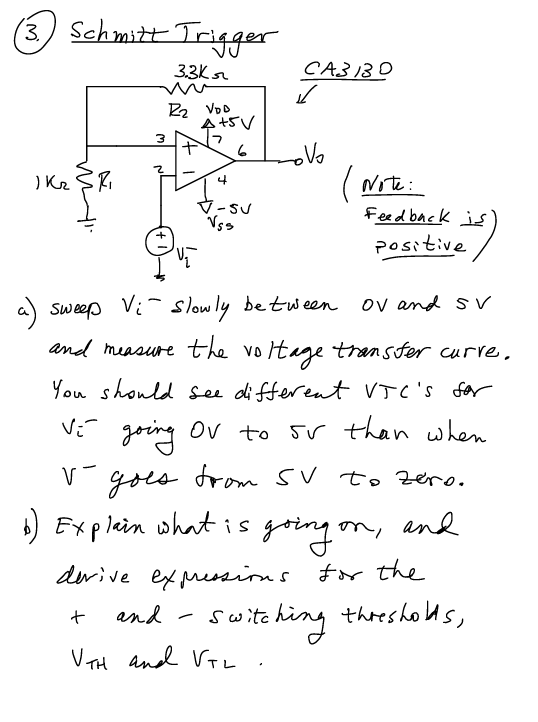 3. Schmitt Trigger
3.3KΩ
CA3130
R2 VDD
+5V
3 + 7
6
Vo
2 -
1KΩ R1
4
-5V
VSS
+
-
Vi-
(Note:
Feedback is
positive)
a) sweep Vi- slowly between 0V and 5V
and measure the voltage transfer curve.
You should see different VTC's for
Vi- going 0V to 5V than when
V- goes from 5V to zero.
b) Explain what is going on, and
derive expressions for the
+ and - switching thresholds,
VTH and VTL.